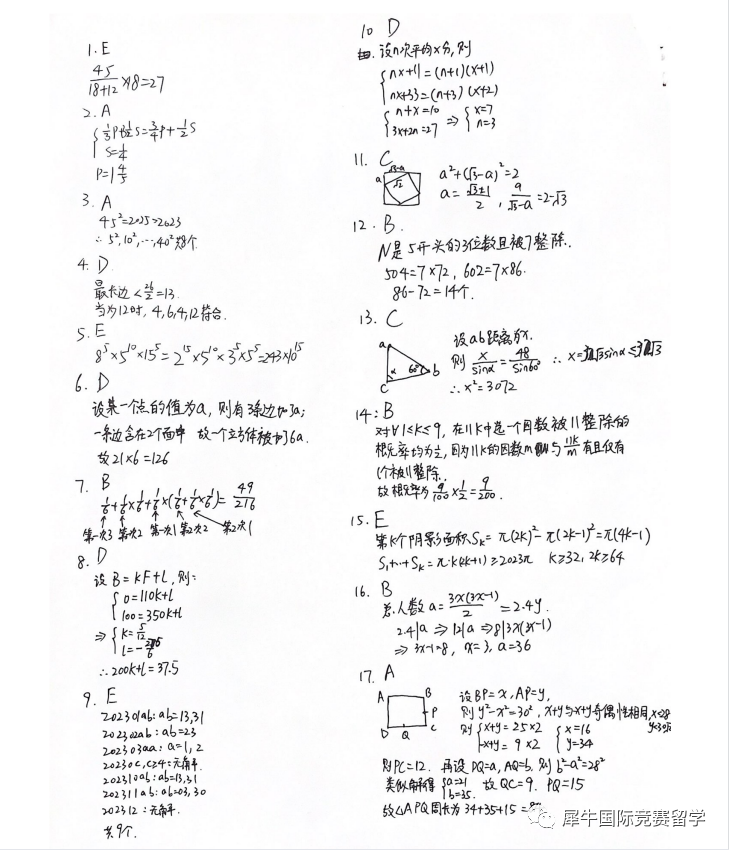 1. E
45/(18+12) ×18=27
2. A
{ 1/3 P+1/2 S=3/4 P+1/2 S
S=1/4
P=1 4/5
3. A
45²=2025>2023
∴ 5², 10², ⋯, 40² 共8个.
4. D.
最长边 < 26/2 =13.
当为12时, 4, 6, 4, 12 符合.
5. E
8⁵×5¹⁰×15⁵=2¹⁵×5¹⁰×3⁵×5⁵=243×10¹⁵
6. D
设某一个点的值为a, 则有3条边加了a;
一条边含在2个面中 故一个立方体被加了6a.
故21×6=126
7. B
1/6+1/6×1/6+1/6×(1/6+1/6×1/6)=49/216
第一次3 第一次2 第一次1 第二次2 第2次1
8. D
设B=kF+l, 则:
{ 0=110k+l
100=350k+l
⇒ { k=5/12
∴ 200k+l=37.5
9. E
202301ab: ab=13,31
202302ab: ab=23
202303aa: a=1, 2
20230c, c≥4: 无解
202310ab: ab=13,31
202311ab: ab=03, 30
202312: 无解.
共9个.
10 D
设n次平均x分, 则
{ nx+11=(n+1)(x+1)
nx+33=(n+3)(x+2)
{ n+x=10
3x+2n=27 ⇒ { x=7
n=3
11. C
√3-a
a √2
a²+(√3-a)²=2
12. B.
N是5开头的3位数且被7整除.
504=7×72, 602=7×86.
86-72=14个.
13. C
a b c α 60°
设ab距离为x.
则 x/sinα = 48/sin60°
∴ x²=3072
14: B
对∀1≤k≤9, 在11k中选一个因数被11整除的
概率均为1/2, 因为11k的因数m与11k/m有且仅有
1个被11整除.
故概率为 9/100×1/2=9/200.
15. E
第k个阴影面积Sₖ=π(2k)²-π(2k-1)²=π(4k-1)
S₁+⋯+Sₖ=π·k(2k+1)≥2023π k≥32, 2k≥64
16. B
总人数a=3x(3x-1)/2=2.4y.
2.4|a ⇒ 12|a ⇒ 8|3x(3x-1)
⇒ 3x-1=8, x=3, a=36
17. A
A B P C Q D
设BP=x, AP=y,
则y²-x²=30², x+y与-x+y奇偶性相同,
则 { x+y=25×2
-x+y=9×2
{ x=16
y=34
则PC=12. 再设DQ=a, AQ=b. 则b²-a²=28²
类似解得 { a=21
b=35. 故QC=9. PQ=15
故△APQ周长为34+35+15=
犀牛国际竞赛留学